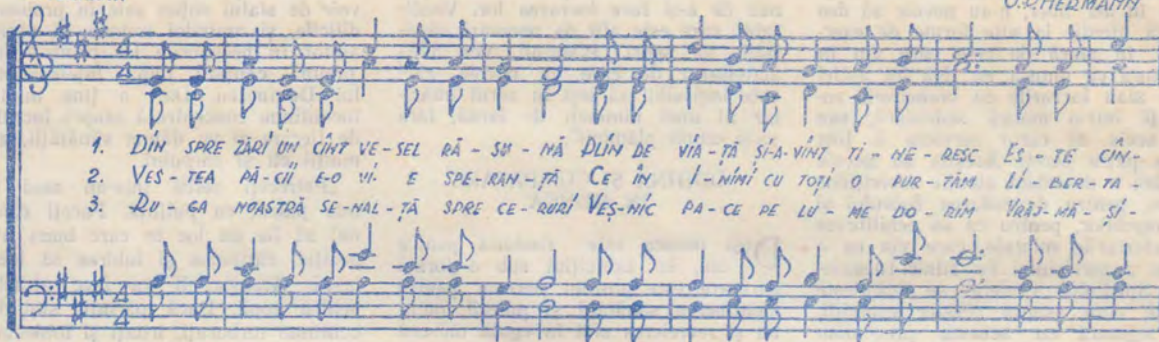 O.D. HERMANN
4 4
1. DIN SPRE ZĂRI UN CÎNT VE-SEL RĂ-SU-NĂ PLIN DE VIA-ȚĂ ȘI-A-VÎNT TI-NE-RESC ES-TE CÎN-
2. VES-TEA PĂ-CII E-O VI-E SPE-RAN-ȚĂ CE ÎN I-NIMI CU TOȚI O PUR-TĂM LI-BER-TA
3. RU-GA NOASTRĂ SE-NAL-ȚĂ SPRE CE-RURI VEȘ-NIC PA-CE PE LU-ME DO-RIM VRĂJ-MĂ-ȘI-
4 4